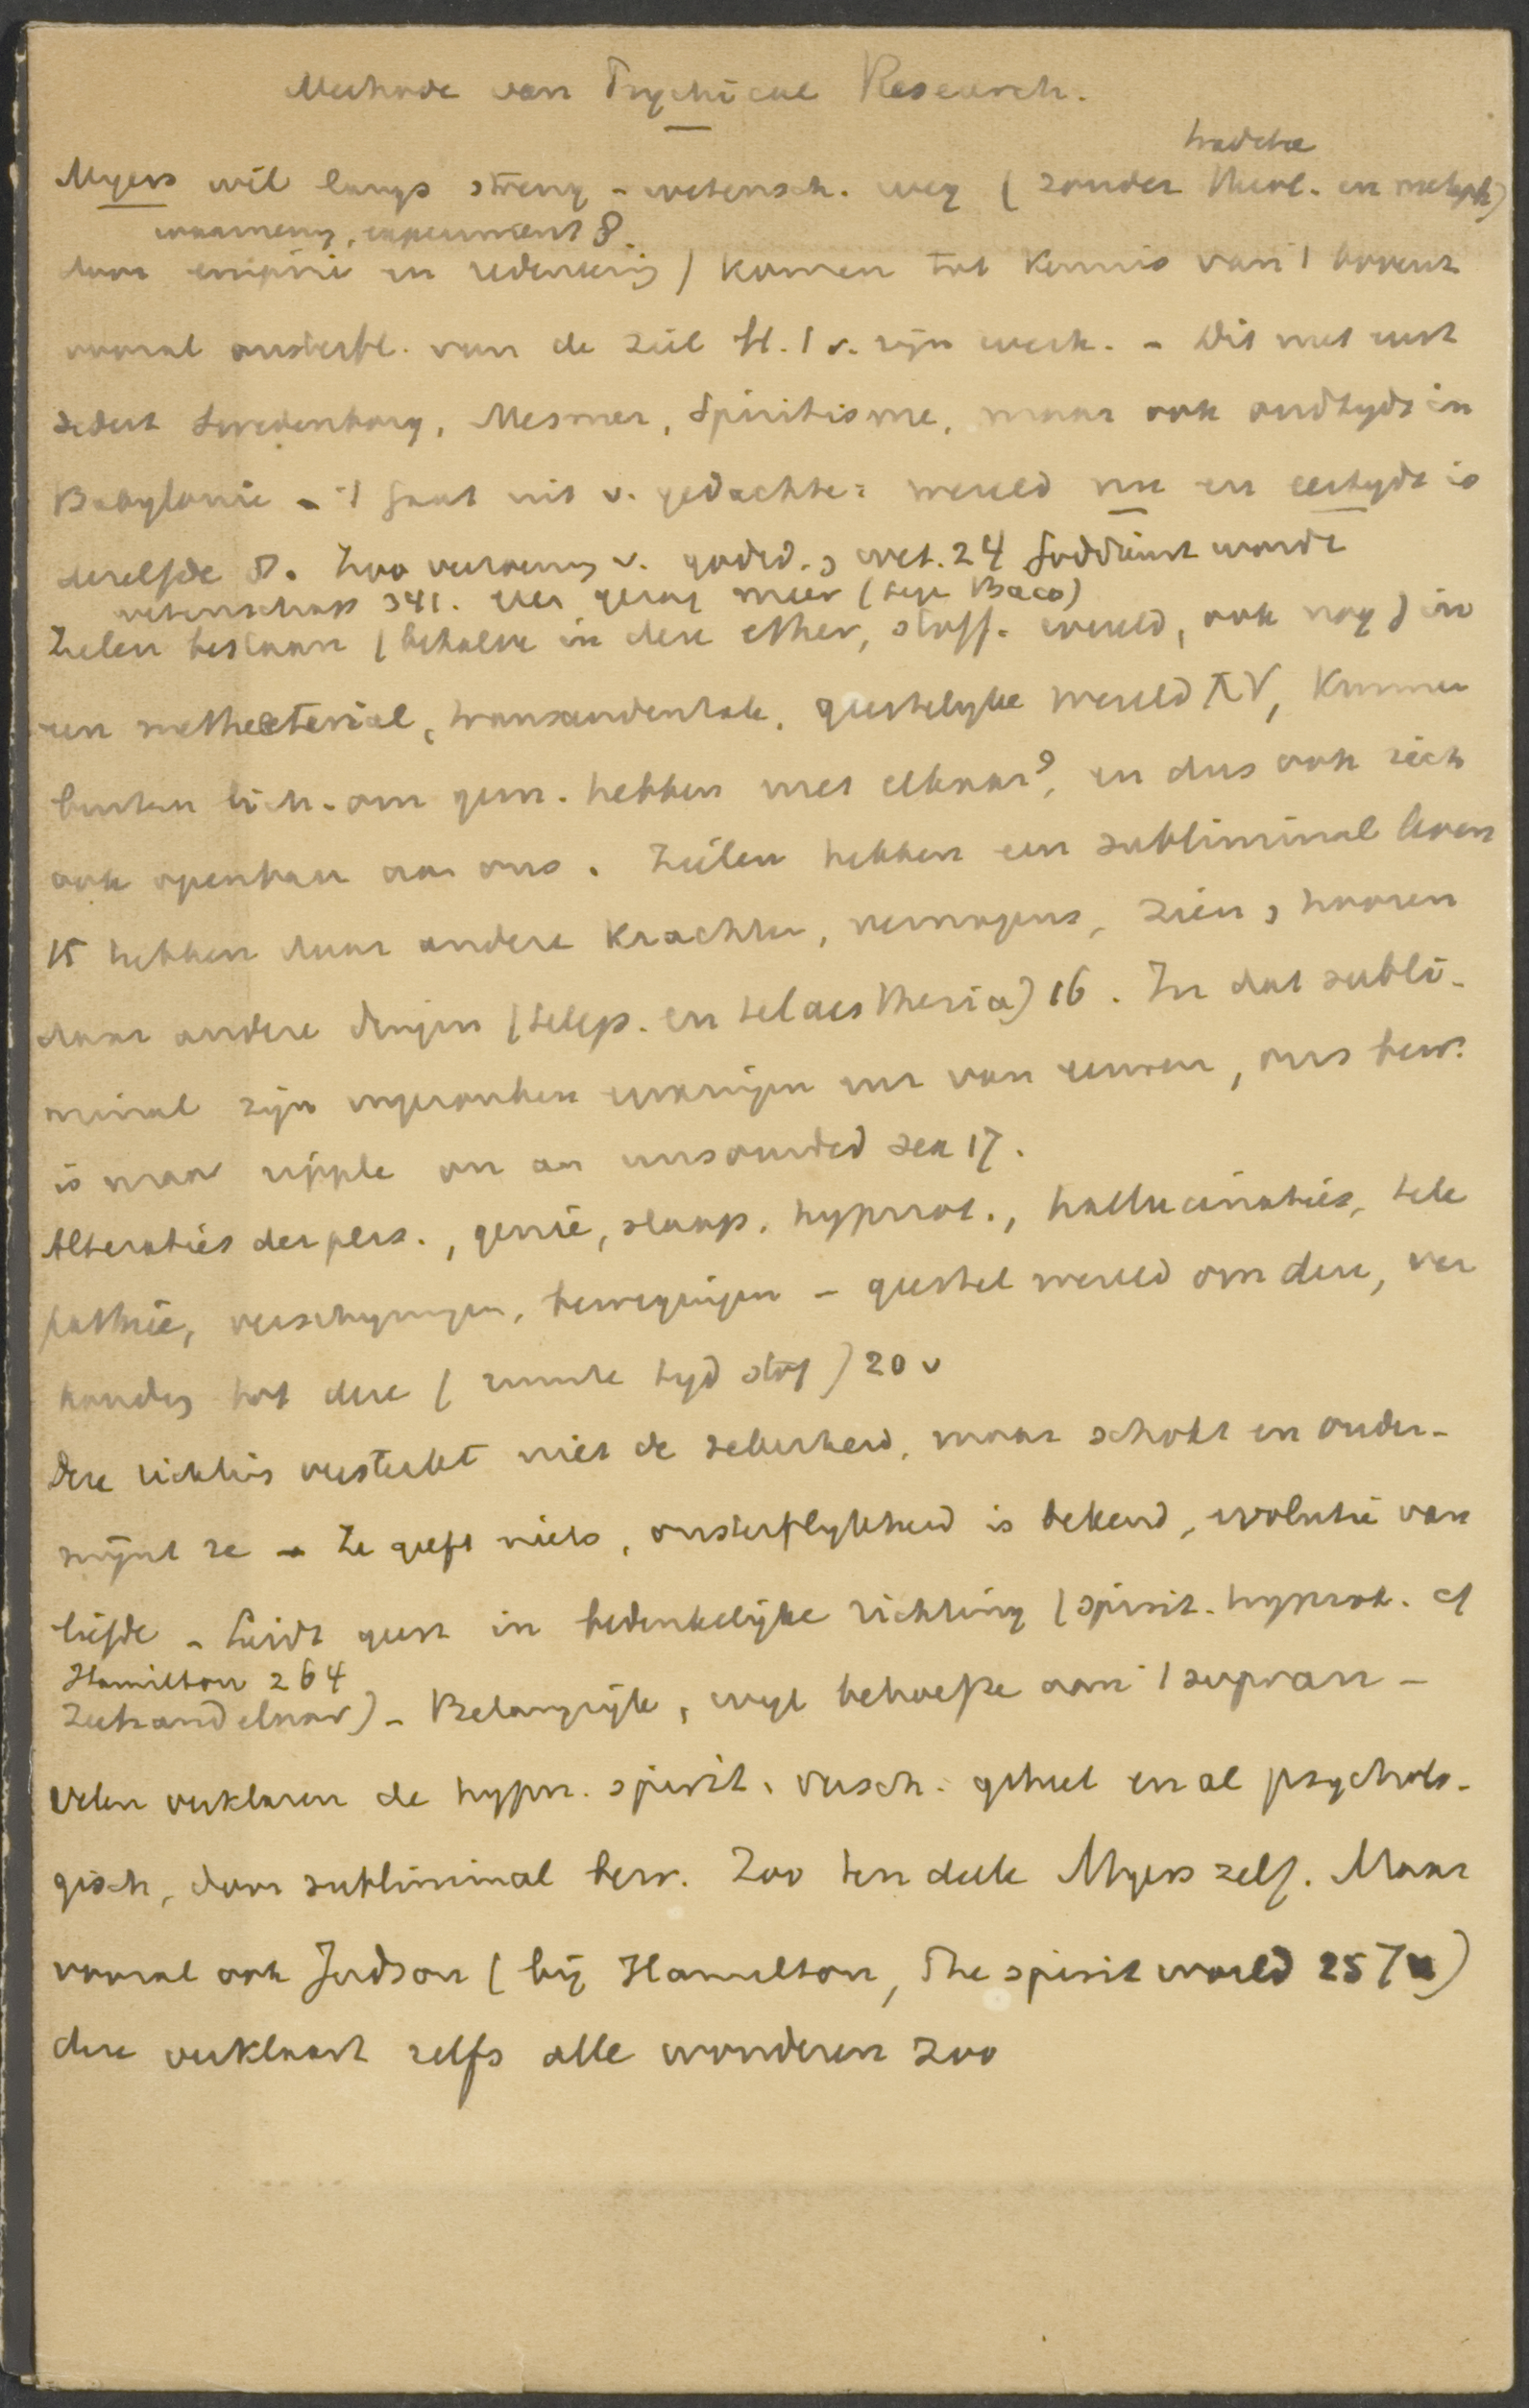 Methode van Psychical Research.
traditie
Myers wil langs streng-wetensch. weg (zonder theol. en metaph)
waarneming, experiment 8.
door empirie en redeneering) komen tot kennis van 't bovenz
vooral onsterfel. van de ziel H. 1 v. zijn werk. - Dit niet eerst
sedert Swedenborg, Mesmer, Spiritisme, maar ook oudtyds in
Babylonie - 't gaat uit v. gedachte: wereld nu en eertyds is
dezelfde 8. Zoo verzoening v. godsd. , wet. 24 godsdienst wordt
wetenschap 341. geen gezag meer (type Baco)
Zielen bestaan (behalve in deze ether, stoff. wereld, ook nog) in
een metheeterial, transcendentale, geestelyke wereld XV, kunnen
buiten lich. om gem. hebben met elkaar 9, en dus ook zich
ook openbaren aan ons. Zielen hebben een subliminal leven
15 hebben daar andere krachten, vermogens, zien, hooren
daar andere dingen (telep. en telaestheria) 16. In dat subli-
minal zijn ervaringen van eeuwen, ons bew.
is maar ripple on an unsounded sea 17.
Alteraties der pers., genie, slaap, hypnot., hallucinaties, tele
pathie, verschyningen, bewegingen - geestel wereld om deze, ver
houding tot deze (ruimte tyd stof) 20 v
Deze richting versterkt niet de zekerheid, maar schokt en onder-
mijnt ze - Ze geeft niets, onsterflykheid is bekend, evolutie van
liefde - Leidt geest in bedenkelijke richting (spirit. hypnot. cf
Hamilton 264
Zielsandelaar) - Belangrijk, wyl behoefte aan 't supran -
Velen verklaren de hypn. spirit. versch. geheel en al psycholo-
gisch, door subliminal bew. Zoo ten deele Myers zelf. Maar
vooral ook Judson (bij Hamilton, The spirit world 257)
deze verklaart zelfs alle wonderen zoo